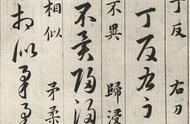 丁反　右刀
丁反右刀
不異　歸浸
不異歸浸
相似　矛柔
相似矛柔